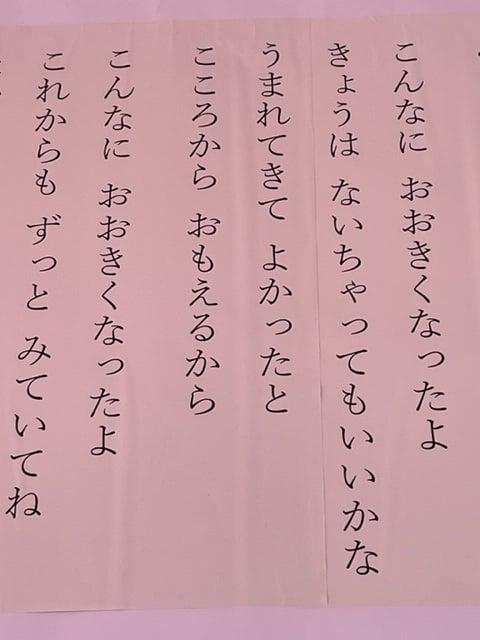 こんなに おおきくなったよ
きょうは ないちゃってもいいかな
うまれてきて よかったと
こころから おもえるから
こんなに おおきくなったよ
これからも ずっと みていてね